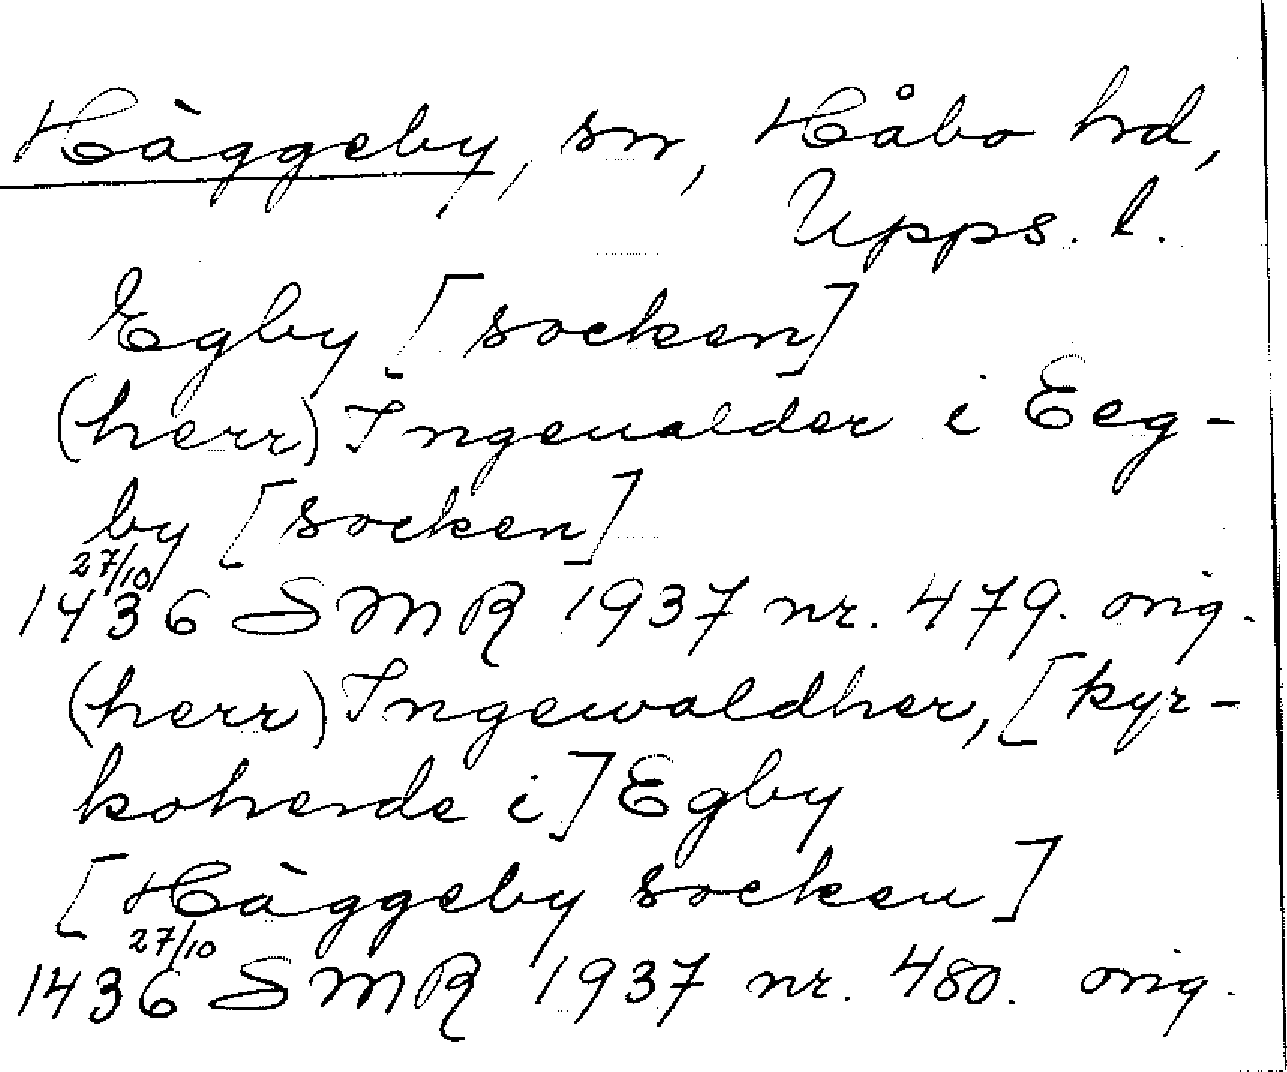 Häggeby, sn, Håbo hd,
Upps. l.
Egby [socken]
(herr) Ingeualder i Eeg-
by [socken]
1436 27/10 SMR 1937 nr. 479. orig.
(herr) Ingewaldher, [kyr-
koherde i] Egby
[Häggeby socken]
1436 27/10 SMR 1937 nr. 480. orig.